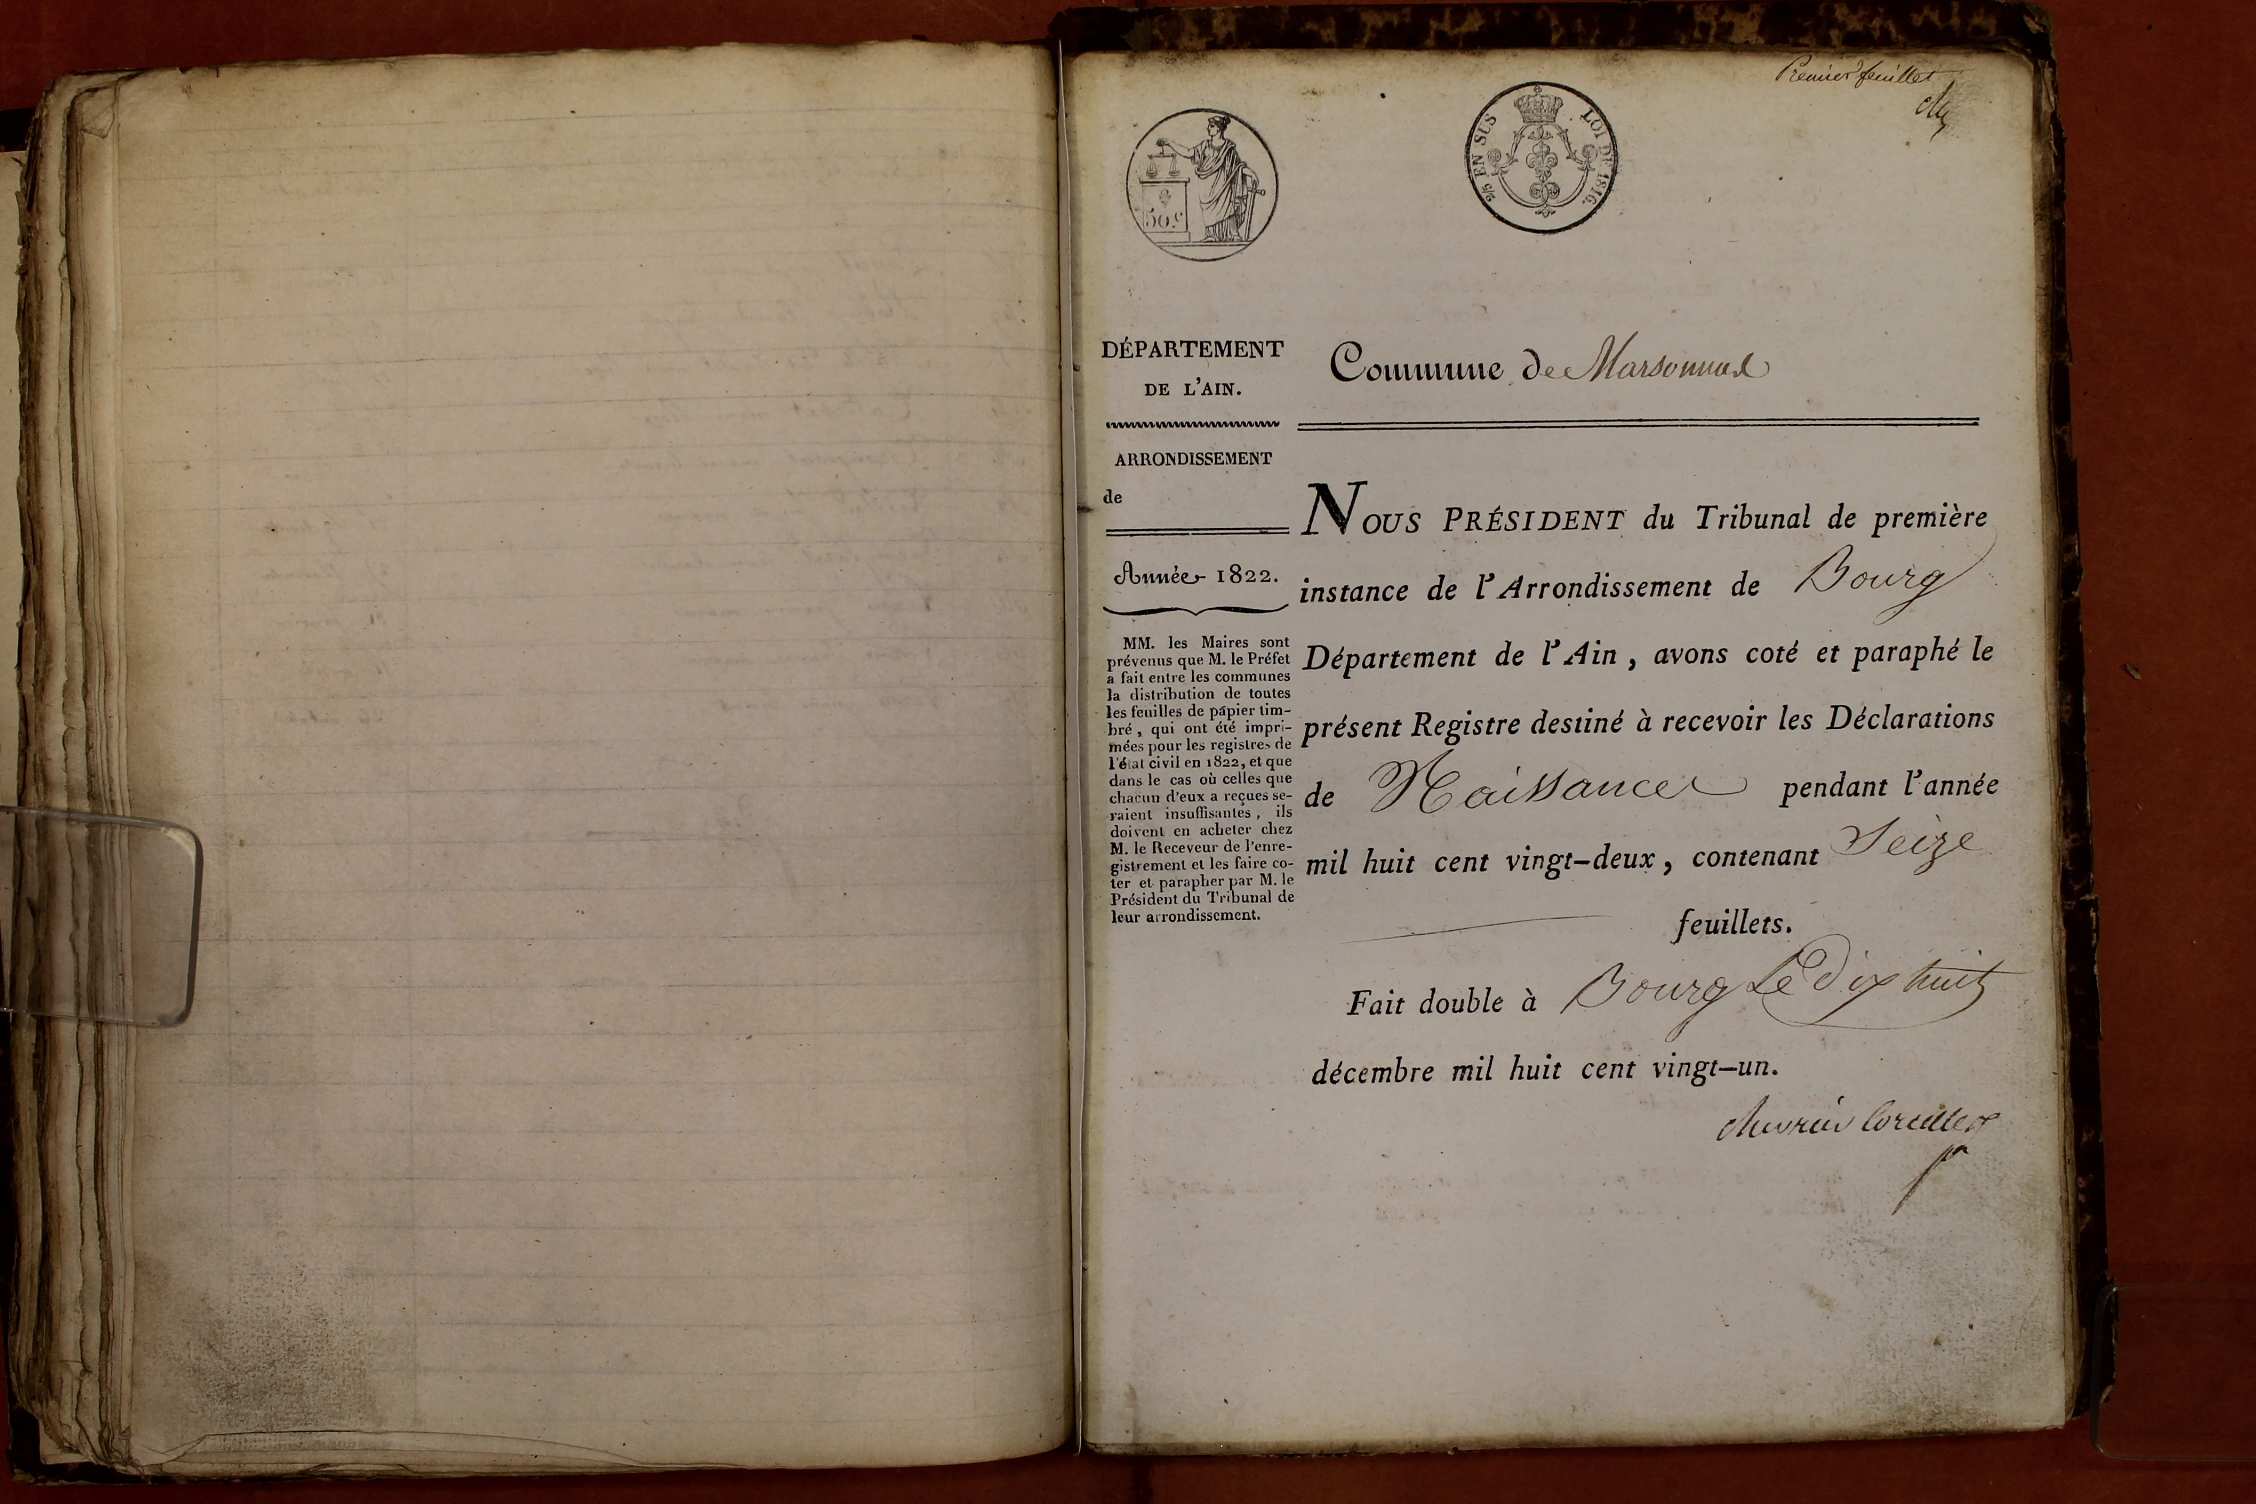 Premier feuillet
50.c
2/5 EN SUS LOI DE 1816.
DÉPARTEMENT
DE L'AIN.
Commune de Marsonnas
ARRONDISSEMENT
de
Année 1822.
MM. les Maires sont
prévenus que M. le Préfet
a fait entre les communes
la distribution de toutes
les feuilles de papier tim-
bré, qui ont été impri-
mées pour les registres de
l'état civil en 1822, et que
dans le cas où celles que
chacun d'eux a reçues se-
raient insuffisantes, ils
doivent en acheter chez
M. le Receveur de l'enre-
gistrement et les faire co-
ter et parapher par M. le
Président du Tribunal de
leur arrondissement.
NOUS PRÉSIDENT du Tribunal de première
instance de l'Arrondissement de Bourg
Département de l'Ain, avons coté et paraphé le
présent Registre destiné à recevoir les Déclarations
de Naissance pendant l'année
mil huit cent vingt-deux, contenant Seize
feuillets.
Fait double à Bourg Le Dix huit
décembre mil huit cent vingt-un.